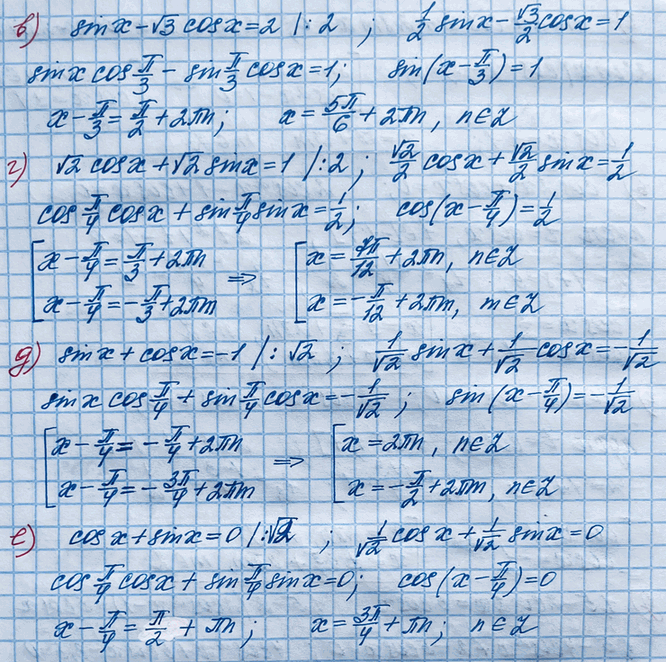 в) sinx - √3 cosx = 2 |:2 ; 1/2 sinx - √3/2 cosx = 1
sinx cos π/3 - sin π/3 cosx = 1; sin(x - π/3) = 1
x - π/3 = π/2 + 2πn; x = 5π/6 + 2πn, n∈Z
г) √2 cosx + √2 sinx = 1 |:2 ; √2/2 cosx + √2/2 sinx = 1/2
cos π/4 cosx + sin π/4 sinx = 1/2; cos(x - π/4) = 1/2
[ x - π/4 = π/3 + 2πn ⇒ [ x = 7π/12 + 2πn, n∈Z
x - π/4 = -π/3 + 2πm x = -π/12 + 2πm, m∈Z
д) sinx + cosx = -1 |:√2 ; 1/√2 sinx + 1/√2 cosx = -1/√2
sinx cos π/4 + sin π/4 cosx = -1/√2 ; sin(x - π/4) = -1/√2
[ x - π/4 = -π/4 + 2πn ⇒ [ x = 2πn, n∈Z
x - π/4 = -3π/4 + 2πm x = -π/2 + 2πm, n∈Z
е) cosx + sinx = 0 |:√2 ; 1/√2 cosx + 1/√2 sinx = 0
cos π/4 cosx + sin π/4 sinx = 0; cos(x - π/4) = 0
x - π/4 = π/2 + πn ; x = 3π/4 + πn; n∈Z